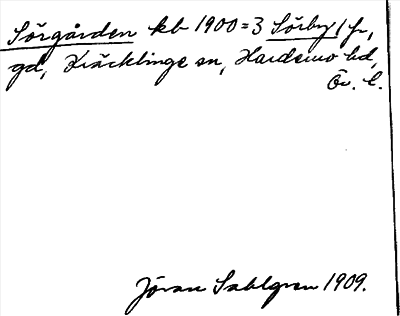 Sörgården kb 1900 = 3 Sörby 1 fr,
gd, Kräcklinge sn, Hardemo hd,
Ör. l.
Jöran Sahlgren 1909.